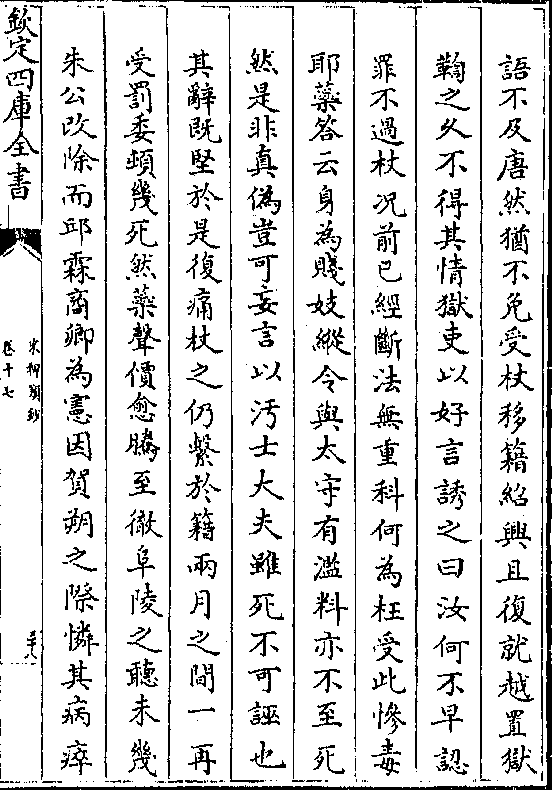 語不及唐然猶不免受杖移籍紹興且復就越置獄
鞫之久不得其情獄吏以好言誘之曰汝何不早認
罪不過杖况前已經斷法無重科何為枉受此慘毒
耶蘂答云身為賤妓縱令與太守有濫料亦不至死
然是非真偽豈可妄言以汚士大夫雖死不可誣也
其辭既堅於是復痛杖之仍繫於籍兩月之間一再
受罰委頓幾死然蘂聲價愈騰至徹阜陵之聽未幾
朱公改除而邱霖商卿為憲因賀朔之際憐其病瘁
欽定四庫全書
卷十七